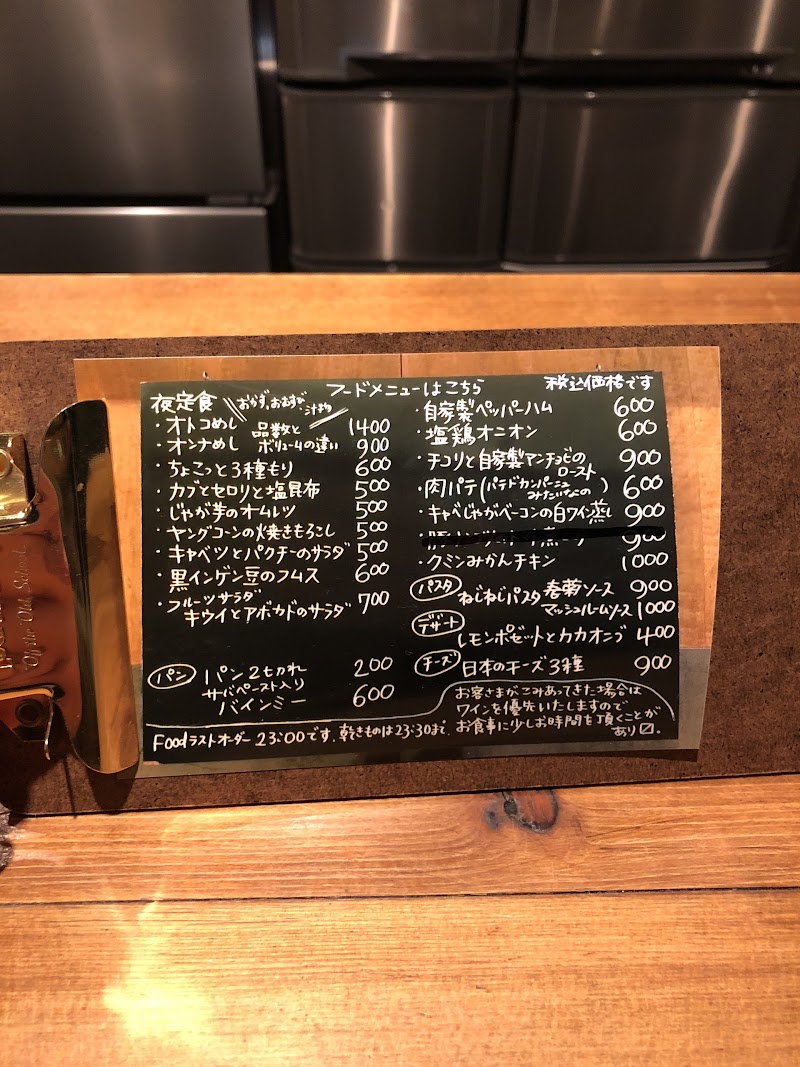 フードメニューはこちら
税込価格です
夜定食
おかず、おむすび、汁もの
・オトコめし 品数と 1400
・オンナめし ボリュームの違い 900
・ちょこっと3種もり 600
・カブとセロリと塩昆布 500
・じゃが芋のオムレツ 500
・ヤングコーンの焼きもろこし 500
・キャベツとパクチーのサラダ 500
・黒インゲン豆のフムス 600
・フルーツサラダ
キウイとアボカドのサラダ 700
パン パン2切れ 200
サバペースト入り
バインミー 600
Foodラストオーダー23:00です。乾きものは23:30まで。
・自家製ペッパーハム 600
・塩鶏オニオン 600
・チコリと自家製アンチョビの
ロースト 900
・肉パテ(パテドカンパーニュ
みたいなの) 600
・キャベじゃがベーコンの白ワイン蒸し 900
900
・クミンみかんチキン 1000
パスタ ねじねじパスタ 春菊ソース 900
マッシュルームソース 1000
デザート
レモンポセットとカカオニブ 400
チーズ 日本のチーズ3種 900
お客さまがこみあってきた場合は
ワインを優先いたしますので
お食事に少しお時間を頂くことが
あり〼。
Off the Old School